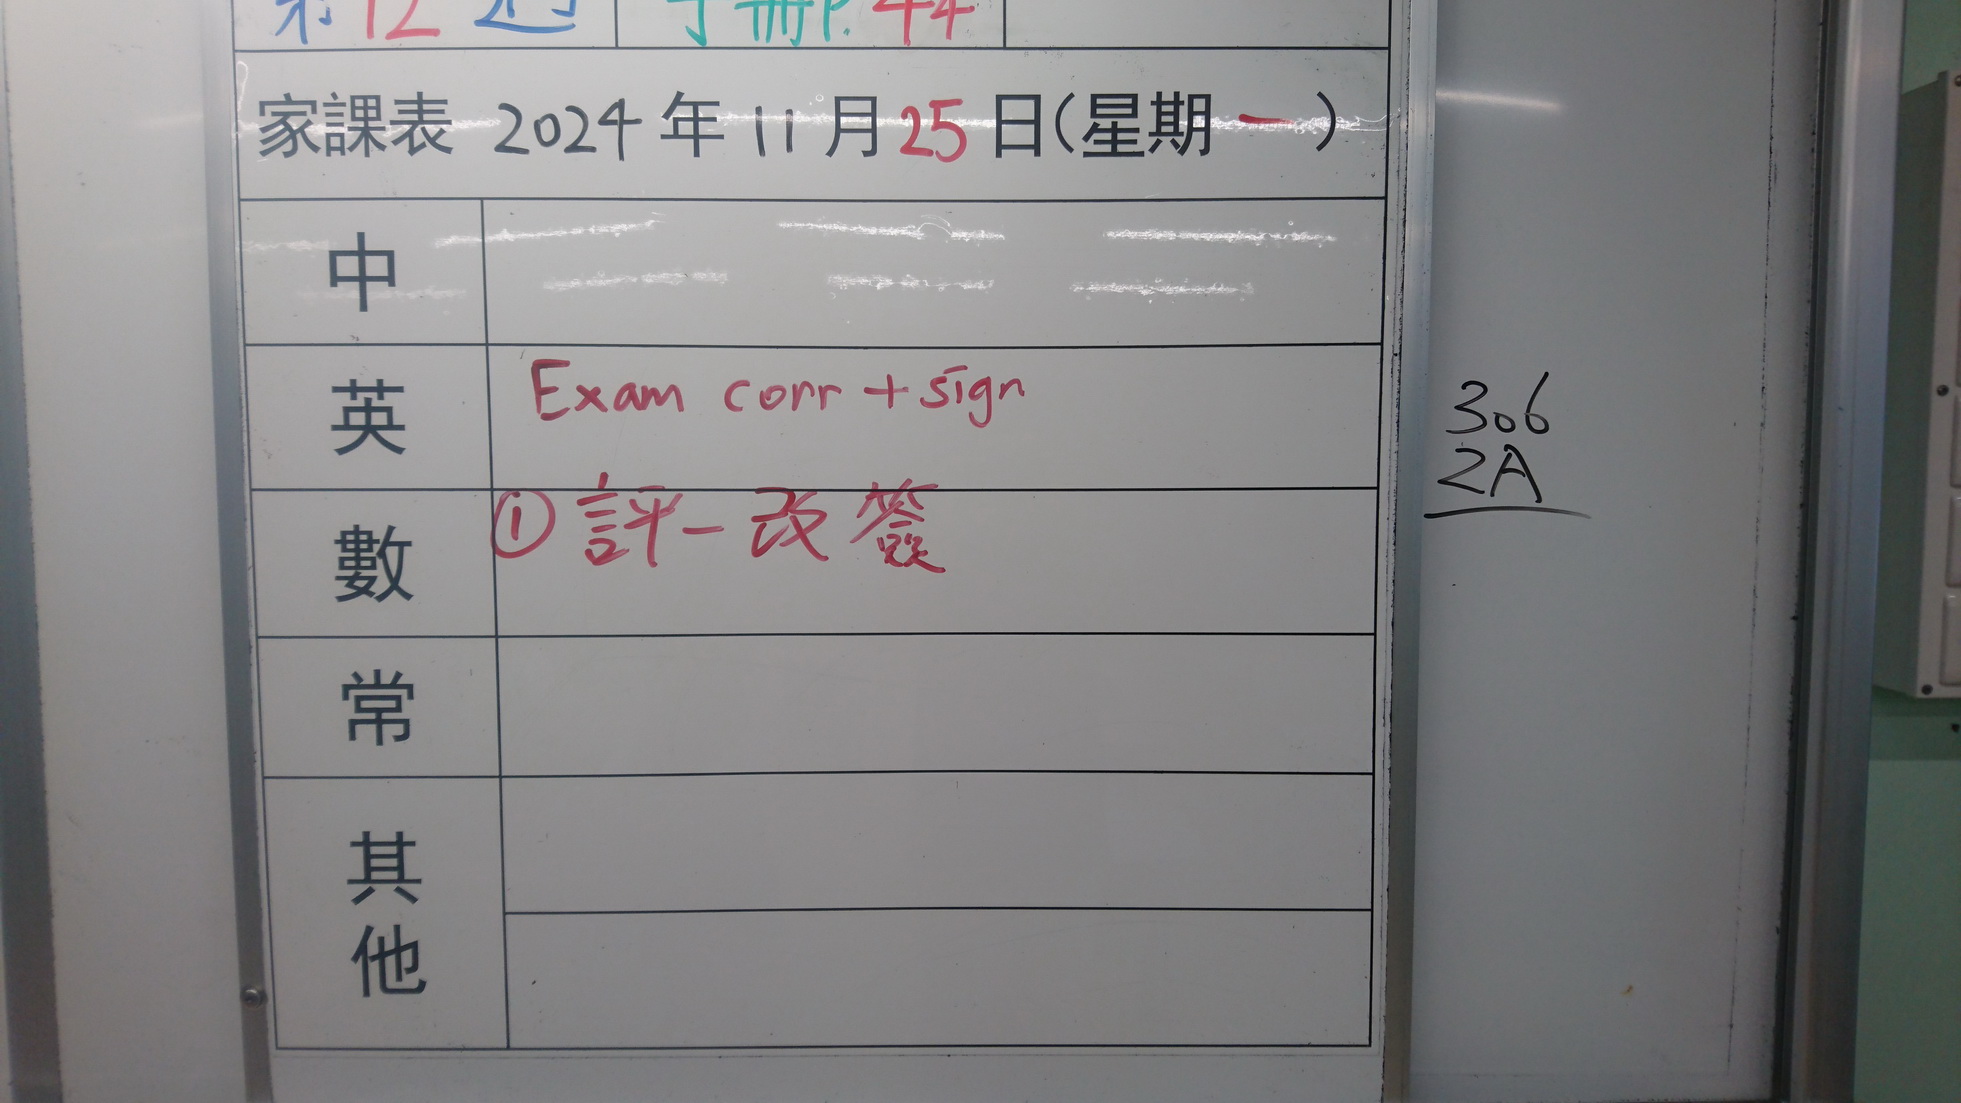 第12週 手冊P.44
家課表 2024年11月25日(星期一)
中
英 Exam corr + sign
數 ① 評一改簽
常
其他
306
2A